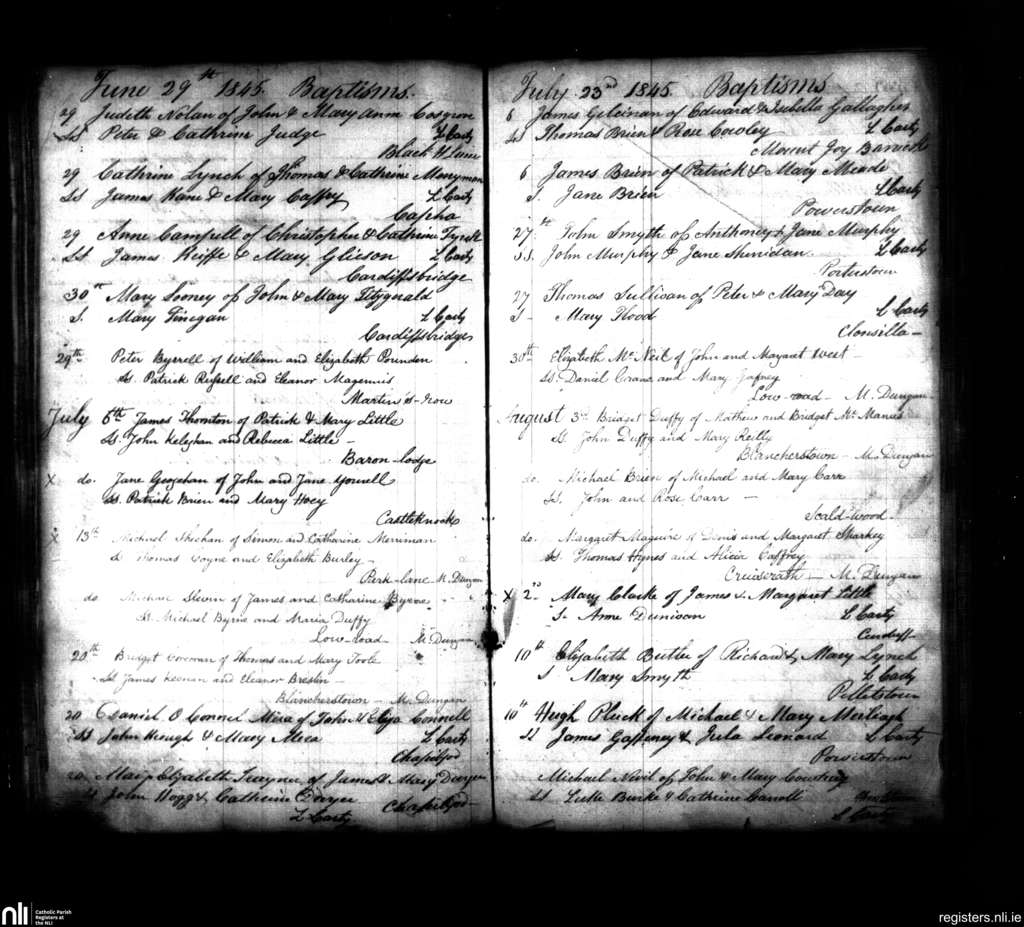 June 29th 1845. Baptisms.
29 Judith Nolan of John & Mary Anm Cosgron
Ss Peter & Cathrine Judge L Carty
Black H Lane
29 Cathrine Lynch of Thomas & Cathrine Merryman
Ss James Kane & Mary Caffry L Carty
Capha
29 Anne Campell of Christopher & Cathrine Tyrell
Ss James Keiffe & Mary Glieson L Carty
Cardiffsbridge
30th Mary Looney of John & Mary Fitzgerald
S. Mary Finegan L Carty
Cardiffsbridge
29th Peter Byrrell of William and Elizabeth Pounden
Ss. Patrick Russell and Eleanor Magennis
Martin's-row
July 6th James Thornton of Patrick & Mary Little
Ss. John Keleghan and Rebecca Little -
Baron-lodge
x do. Jane Geoghan of John and Jane Yowell
Ss. Patrick Brien and Mary Hoey
Castleknock
x 13th Michael Sheehan of Simon and Catharine Merriman
Thomas Coyne and Elizabeth Burley -
Park-lane M. Dungan
do Michael Slevin of James and Catharine Byrne
Ss. Michael Byrne and Maria Duffy
Low-road - M. Dungan
20th Bridget of Thomas and Mary Toole
Ss James Keenan and Eleanor Breslin -
Blancherstown - M. Dungan
20 Daniel O Connel of John & Eliza Connell
Ss John Keough & Mary L Carty
Chapilfod
20 Mary Elizabeth Traynor of James & Mary Dwyer
Ss John Hogg & Cathrine Dwyer Chapilfod
L Carty
July 23rd 1845 Baptisms
6 James of Edward & Isabella Gallagher
Ss Thomas Brien & Rose Cowley L Carty
Mount Joy Barrick
6 James Brien of Patrick & Mary Meade
S. Jane Brien L Carty
Powerstown
27th John Smyth of Anthoney & Jane Murphy
Ss. John Murphy & Jane Sheridan L Carty
Porterstown
27 Thomas Sullivan of Peter & Mary Day
S - Mary Flood L Carty
Clonsilla -
30th Elizabeth Mc Neil of John and Margaret West -
Ss. Daniel Crane and Mary
Low-road - M. Dungan
August 3rd Bridget Duffy of Mathew and Bridget Mc Manus
Ss John Duffy and Mary Reilly
Blancherstown - M. Dungan
do. Michael Brien of Michael and Mary Carr
Ss. John and Rose Carr -
Scald-wood -
do. Margaret Maguire of Denis and Margaret Sharkey
Ss Thomas Hynes and Alicia Caffrey
Cruiserath - M. Dungan
x 2nd Mary Clarke of James & Margaret Little
S. Anne Dunison L Carty
10th Elizabeth Butler of Richard & Mary Lynch
S Mary Smyth L Carty
Pelletstown
10th Hugh Pluck of Michael & Mary
Ss James Gaffeney & Jula Leonard L Carty
Powerstown
Michael Nevil of John & Mary
Ss Luke Burke & Cathrine
L Carty
nli
Catholic Parish
Registers at
the NLI
registers.nli.ie